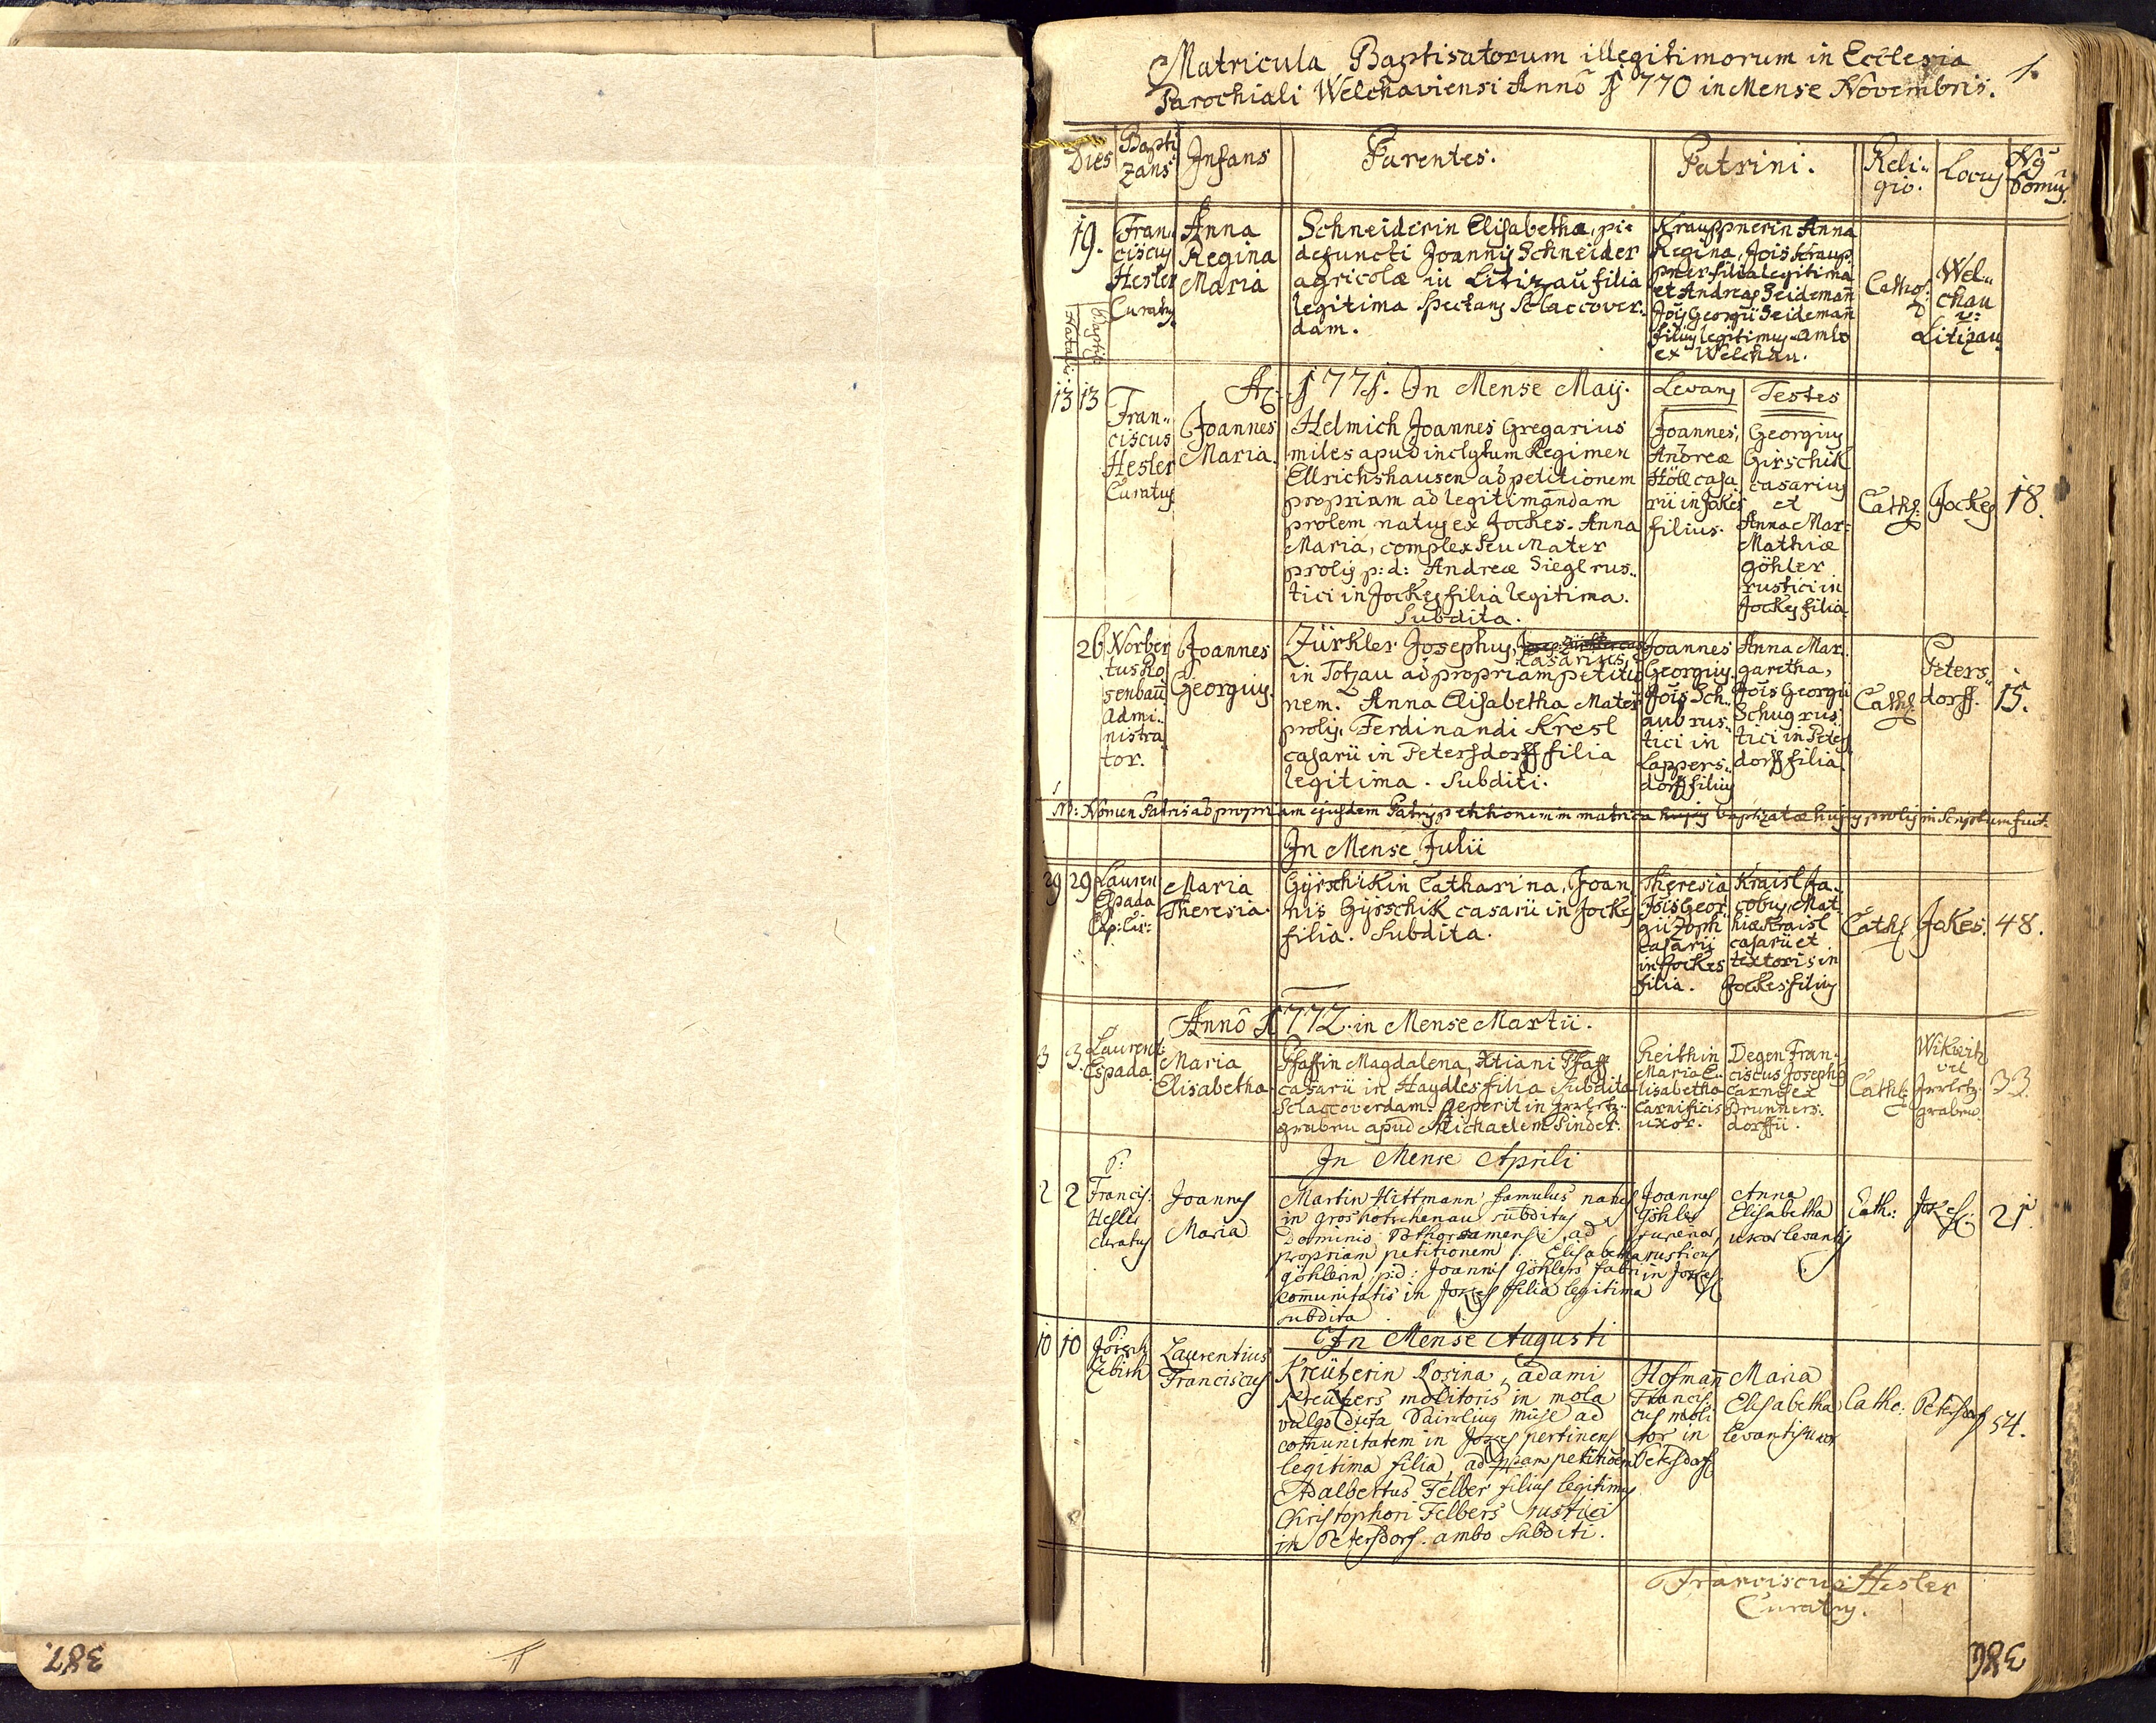 Matricula Baptisatorum illegitimorum in Ecclesia
Parochiali Welchaviensi Annô 1770 in Mense Novembris.
1.
Dies
Bapti
zans
Infans
Parentes.
Patrini.
Reli„
gio.
Locus
Nrus
Domus
19.
Fran„
ciscus
Hesler
Curatus
Anna
Regina
Maria
Schneiderin Elisabetha, pie
defuncti Joannis Schneider
agricolæ in Litizau filia
legitima spectans Schlaccover„
dam.
Krauppnerin Anna
Regina, Jois Kraup„
pner filia legitima
et Andreas Seidemañ
Jois Georgii Seidemañ
filius legitimus ambo
ex Welchau.
Cathol:
Wel„
chau
v:
Litizau
Natalis
baptis
Aº 1771. In Mense Maij.
Levans
Testes
13 13
Fran„
ciscus
Hesler
Curatus
Joannes
Maria.
Helmich Joannes Gregarius
miles apud inclytum Regimen
Ellrichshausen ad petitionem
propriam ad legitimandam
prolem natus ex Jockes. Anna
Maria, complex seu Mater
prolis p: d: Andreæ Siegl rus„
tici in Jockes filia legitima.
Subdita.
Joannes,
Andreæ
Höll casa
rii in Jokes
filius.
Georgius
Girschik
casarius
et
Anna Mar„
Mathiæ
göhler
rustici in
Jockes filia
Cath:
Jockes
18.
26
Norber
tus Ro
senbau̅
admi„
nistra
tor.
Joannes
Georgius.
Zürkler Josephus,
casarius,
in Totzau ad propriam petitio
nem. Anna Elisabetha Mater
prolis, Ferdinandi Kresl
casarii in Petersdorff filia
legitima. Subditi.
Joannes
Georgius.
Jois Sch„
aub rus„
tici in
Lappers„
dorff filius
Anna Mar„
garetha,
Jois Georgii
Schug rus
tici in Peters
dorff filia.
Cath:
Peters„
dorff.
15.
NB: Nomen Patris ad propriam ejusdem Patris petitionem in matrica hujus baptizatæ hujus prolis inscriptum fuit.
In Mense Julii
29 29
Lauren
Espada
Exp: Cur:
Maria
Theresia.
Gyrschikin Catharina, Joan
nis Gyrschik casarii in Jockes
filia. Subdita.
Theresia
Jois Geor
gii Zoph
casarii
in Jockes
filia.
Kraisl Ja„
cobus, Mat
hiæ Kraisl
casarii et
textoris in
Jockes filius
Cath:
Jokes.
48.
Annô 1772. in Mense Martii.
3 3.
P. Laurent:
Espada.
Maria
Elisabetha.
Pfaffin Magdalena, Xtiani Pfaff
casarii in Haydles filia Subdita
Schlaccoverdam. Peperit in
graben apud Michaelem Pinder.
Reithin
Maria E„
lisabetha
Carnificis
uxor.
Degen Fran„
ciscus Josephus
Carnifex
Brunners„
dorffii.
Cathl:
Wikwitz
vel
graben
33.
In Mense Aprili
2 2
P:
Francis:
Hesler
Curatus
Joannes
Maria
Martin Hittmann famulus natus
in subditus
Dominio ad
propriam petitionem. Elisabetha
göhlerin p:d: Joannis göhlers fabri
com̅unitatis in Jokes filia legitima
subdita
Joannes
Göhler
rusticus
in Jokes
Anna
Elisabetha
uxor levantis
Cath:
Jokes.
21.
In Mense Augusti
10 10
P.
Laurentius
Franciscus
Kreützerin Rosina, adami
Kreützers molitoris in mola
vulgo dicta ad
com̅unitatem in Jokes pertinens
legitima filia, ad ppriam petitionem
Adalbertus Felber filius legitimus
Christophori Felbers rustici
in Petersdorf. ambo subditi.
Hofman̅
Francis„
cus moli
tor in
Petersdorf
Maria
Elisabetha
Levantis uxor
Catho:
Petersdorf
54.
Franciscus Hesler
Curatus.
386
387.